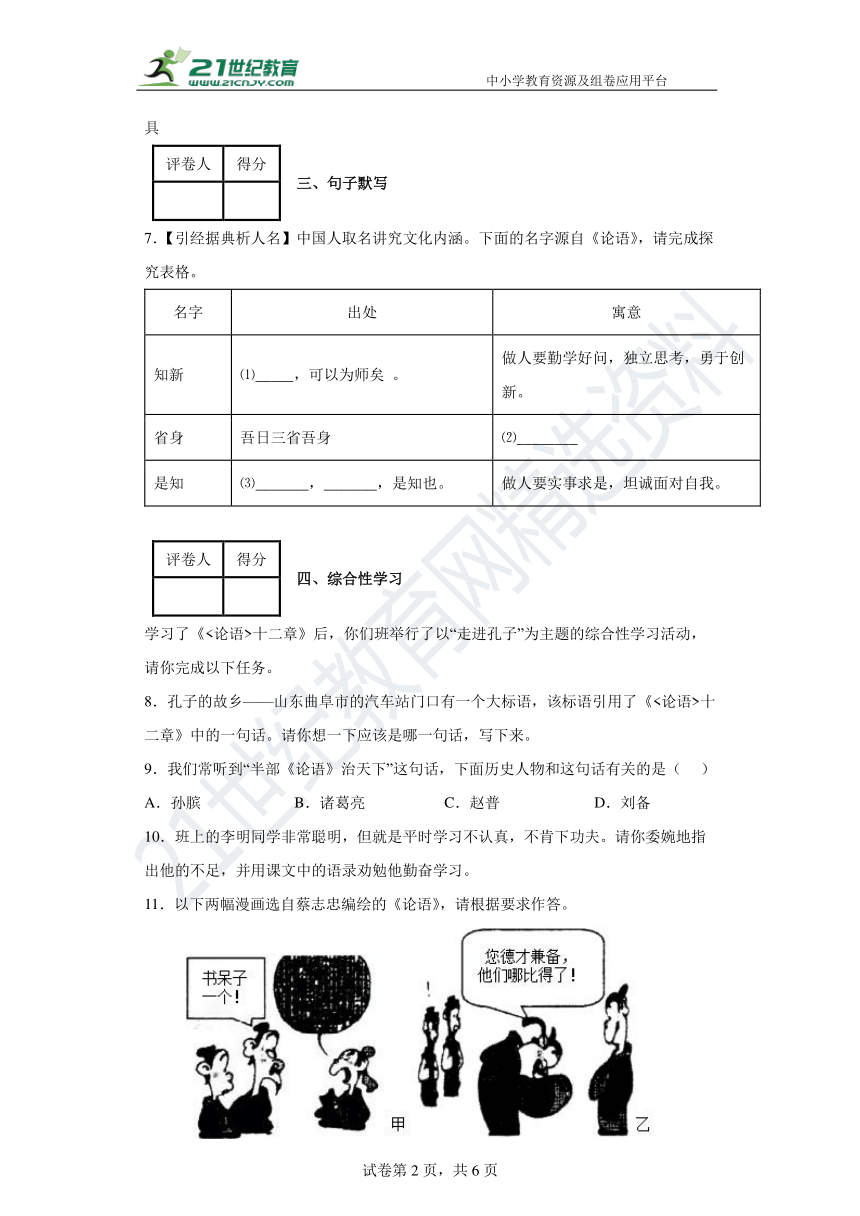 21世纪教育
WWW.21CNJY.COM
中小学教育资源及组卷应用平台
具
评卷人 得分
三、句子默写
7.【引经据典析人名】中国人取名讲究文化内涵。下面的名字源自《论语》，请完成探
究表格。
名字 出处 寓意
知新 ⑴_____，可以为师矣 。 做人要勤学好问，独立思考，勇于创
新。
省身 吾日三省吾身 ⑵________
是知 ⑶_______，_______，是知也。 做人要实事求是，坦诚面对自我。
评卷人 得分
四、综合性学习
学习了《<论语>十二章》后，你们班举行了以“走进孔子”为主题的综合性学习活动，
请你完成以下任务。
8．孔子的故乡——山东曲阜市的汽车站门口有一个大标语，该标语引用了《<论语>十
二章》中的一句话。请你想一下应该是哪一句话，写下来。
9．我们常听到“半部《论语》治天下”这句话，下面历史人物和这句话有关的是（ ）
A．孙膑 B．诸葛亮 C．赵普 D．刘备
10．班上的李明同学非常聪明，但就是平时学习不认真，不肯下功夫。请你委婉地指
出他的不足，并用课文中的语录劝勉他勤奋学习。
11．以下两幅漫画选自蔡志忠编绘的《论语》，请根据要求作答。
书呆子
一个！
您德才兼备，
他们哪比得了！
！
甲 乙
试卷第 2 页，共 6 页
21世纪教育网精选资料